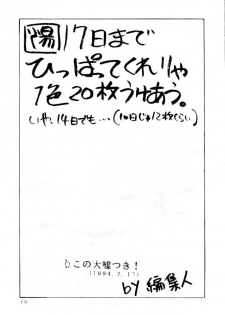 陽 17日まで
ひっぱってくれりゃ
1色20枚うけあう。
いや、14日でも…(10日じゃ12枚くらい)
この大嘘つき!
(1994.7.17)
by 編集人
19